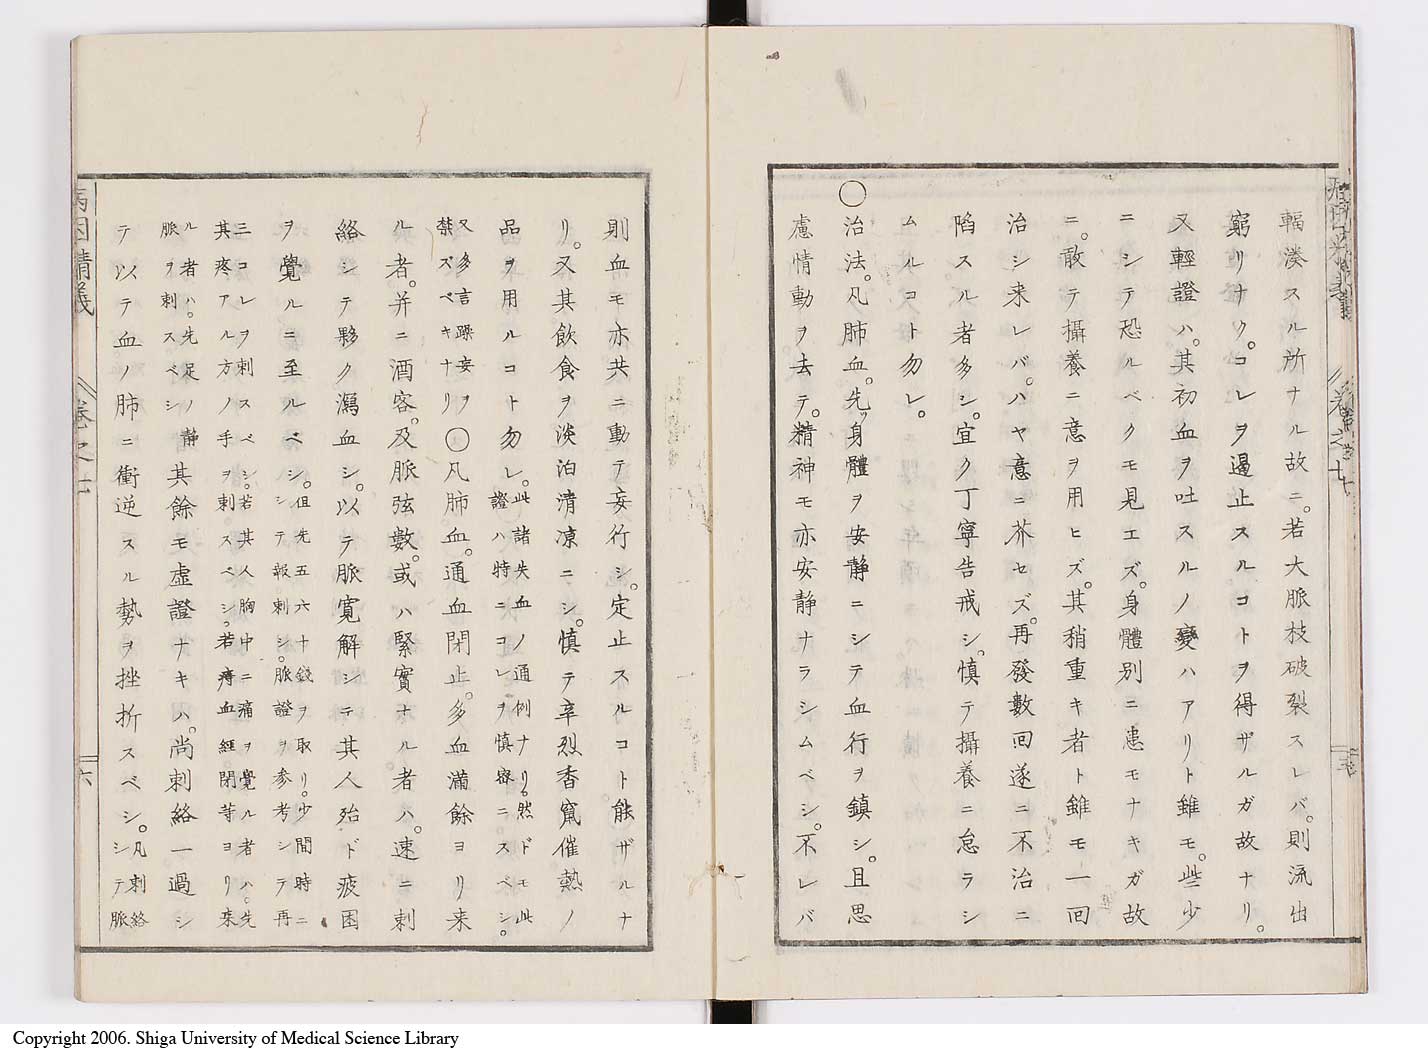 輻湊スル所ナル故ニ。若大脈枝破裂スレバ。則流出
窮リナク。コレヲ遏止スルコトヲ得ザルガ故ナリ。
又輕證ハ。其初血ヲ吐スルノ變ハアリト雖モ。些少
ニシテ恐ルベクモ見エズ。身體別ニ患モナキガ故
ニ。敢テ攝養ニ意ヲ用ヒズ。其稍重キ者ト雖モ一回
治シ来レバ。ハヤ意ニ芥セズ。再發數回遂ニ不治ニ
陷スル者多シ。宜ク丁寧告戒シ。慎テ攝養ニ怠ラシ
ムルコト勿レ。
〇治法。凡肺血。先ッ身體ヲ安靜ニシテ血行ヲ鎮シ。且思
慮情動ヲ去テ。精神モ亦安静ナラシムベシ。不レバ
則血モ亦共ニ動テ妄行シ。定止スルコト能ザルナ
リ。又其飲食ヲ淡泊清凉ニシ。慎テ辛烈香竄催熱ノ
品ヲ用ルコト勿レ。此諸失血ノ通例ナリ。然ドモ此
證ハ特ニコレヲ慎密ニスベシ。
又多言躁妄ヲ
禁ズベキナリ〇凡肺血。通血閉止。多血滿餘ヨリ来
ル者。并ニ酒客。及脈弦數。或ハ緊實ナル者ハ。速ニ刺
絡シテ夥ク瀉血シ。以テ脈寛解シテ其人殆ド疲困
ヲ覺ルニ至ルベシ。但先五六十錢ヲ取リ。少間時ニ
シテ報刺シ。脈證ヲ参考シテ再
三コレヲ刺スベシ。若其人胸中ニ痛ヲ覺ル者ハ。先
其疼アル方ノ手ヲ刺スベシ。若痔血經閉等ヨリ来
ル者ハ。先足ノ靜
脈ヲ刺スベシ
其餘モ虚證ナキハ。尚刺絡一過シ
テ以テ血ノ肺ニ衝逆スル勢ヲ挫折スベシ。凡刺絡
シテ脈
病因精義
卷之七
六